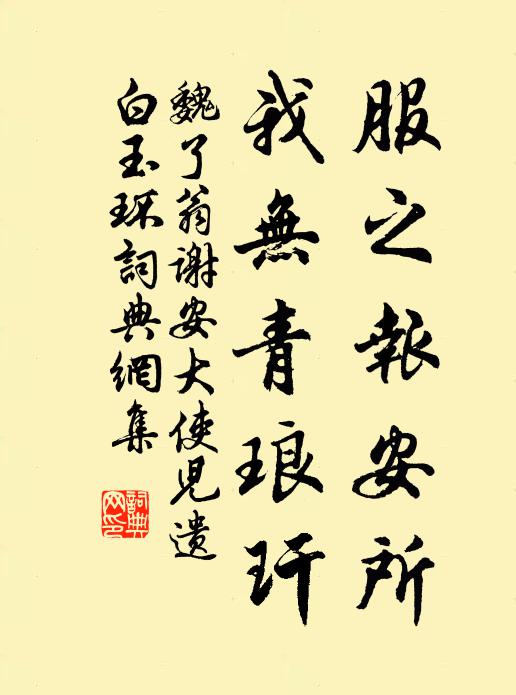 服之報安所
我無青琅玕
魏了翁谢安大使見遺
白玉環詞典網集
詞典
网印